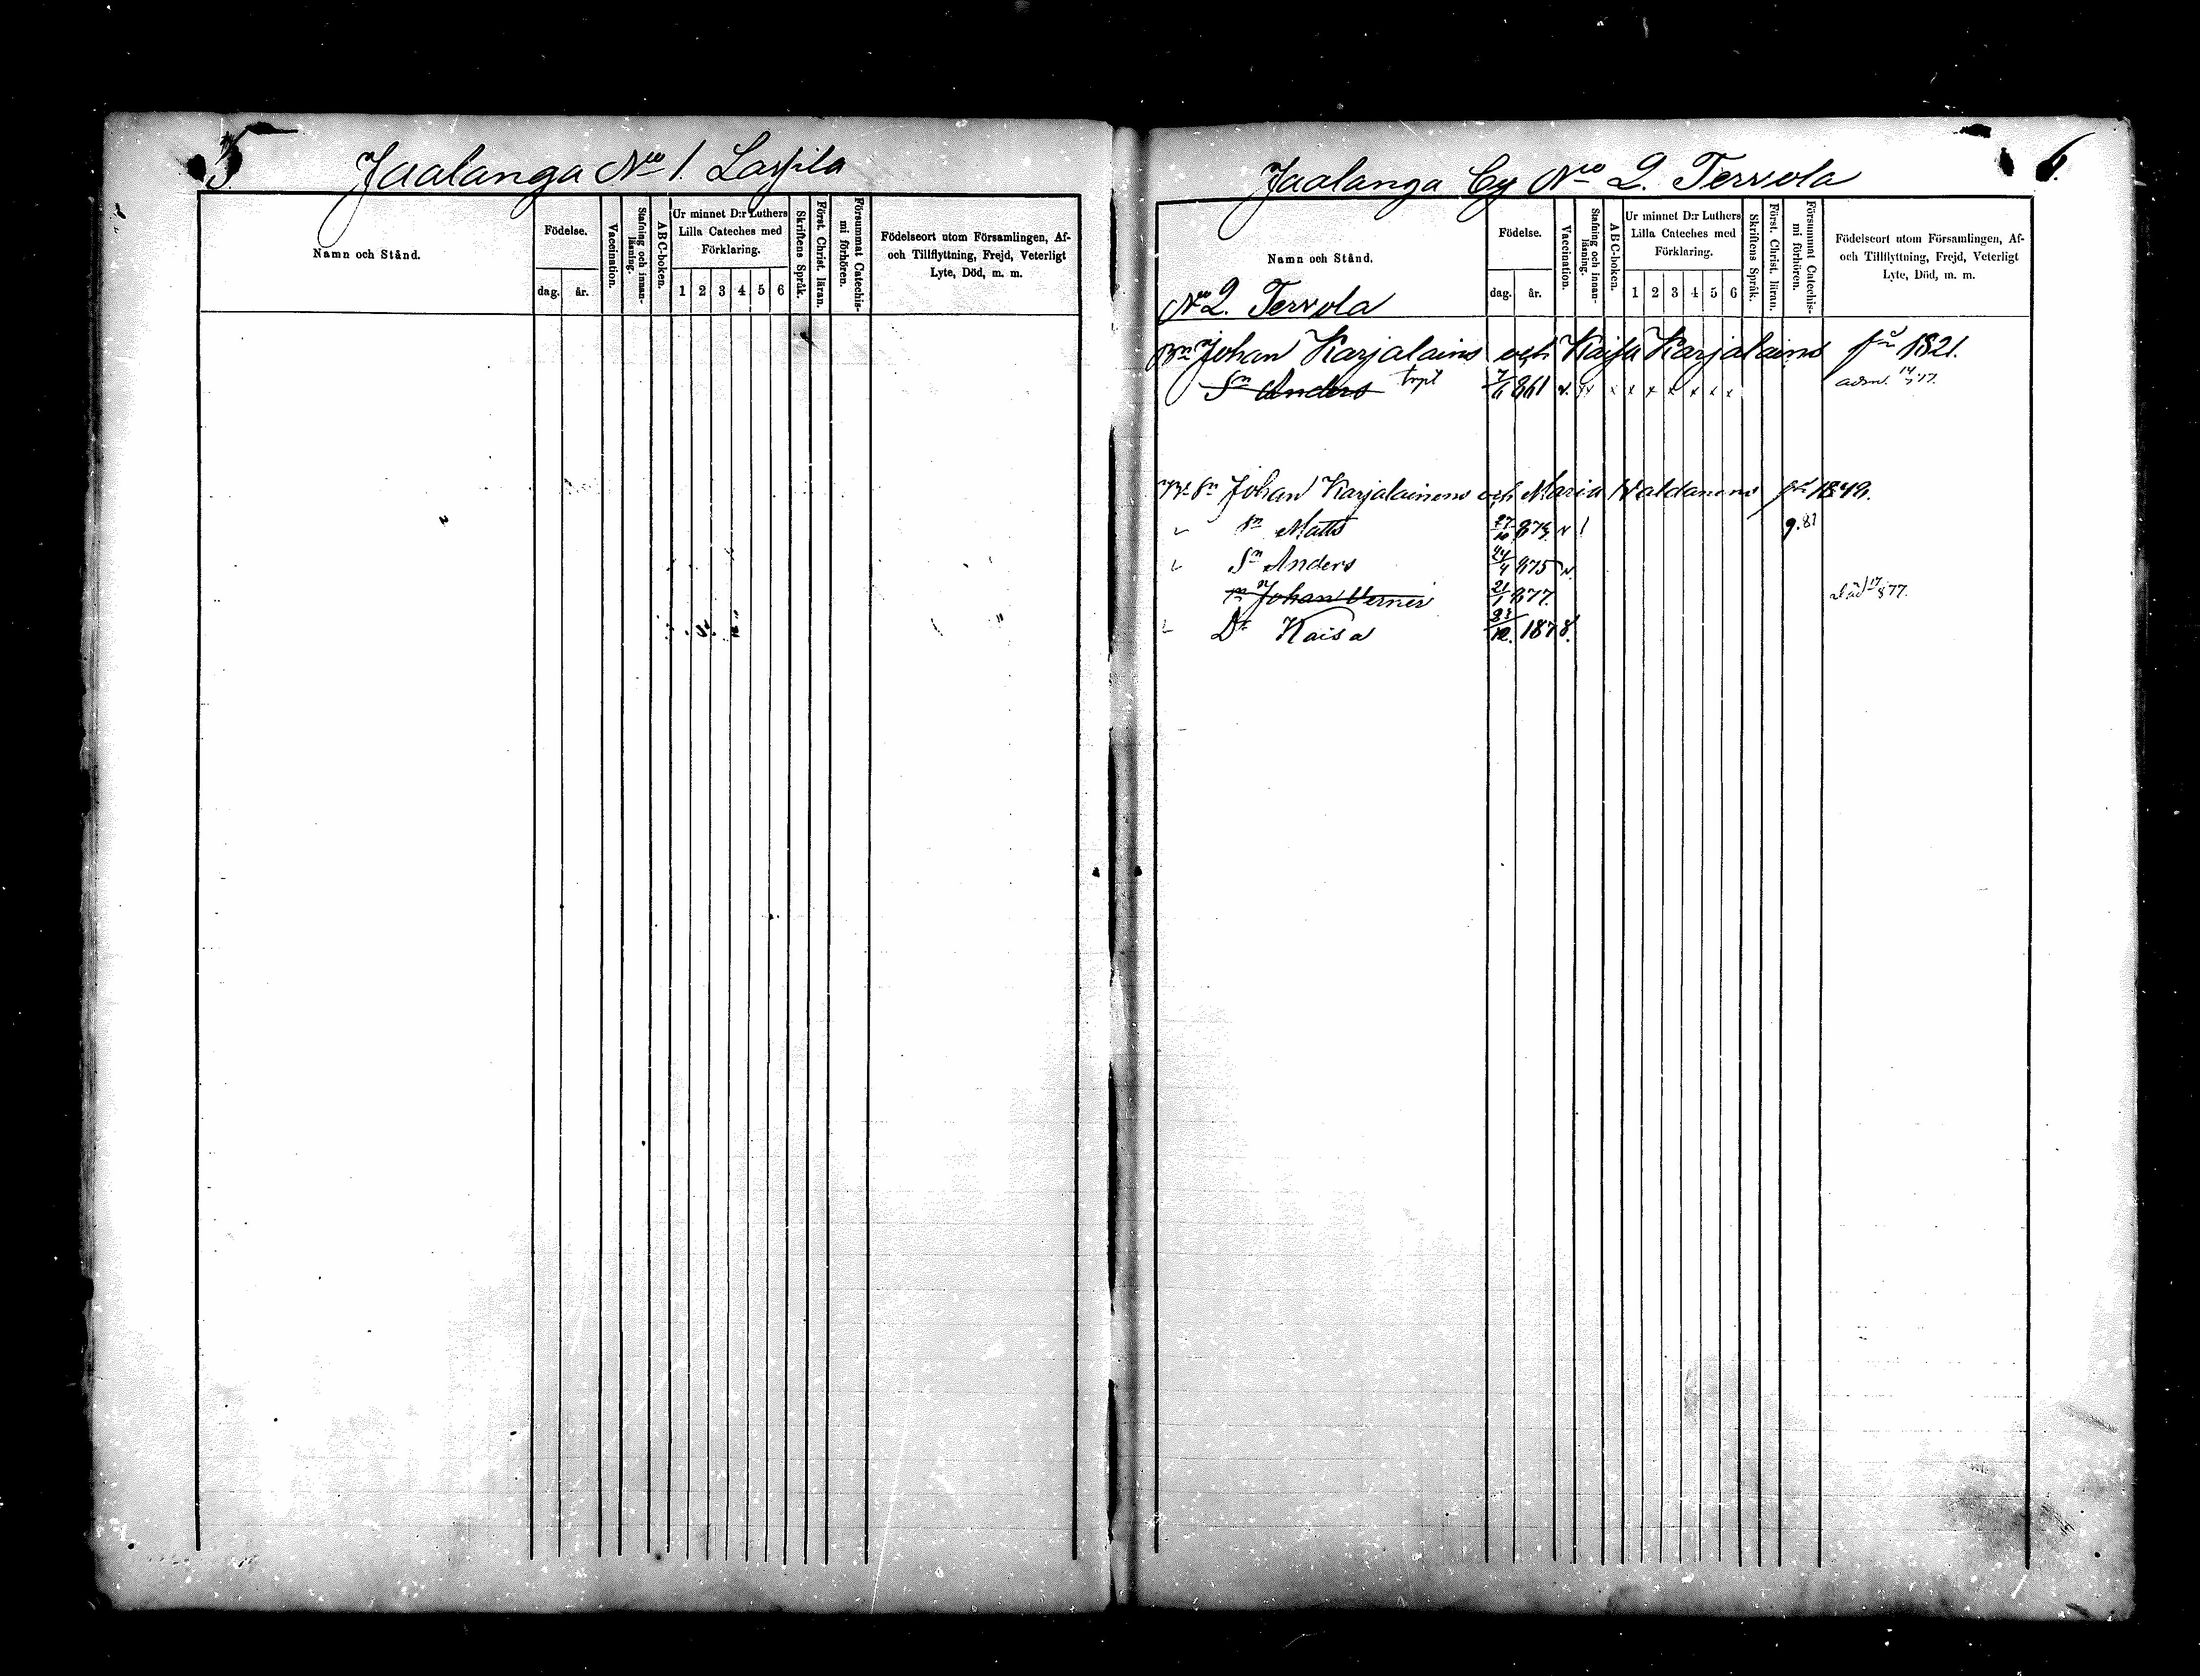 5
Jaalanga No 1. Lassila
Namn och Stånd.
Födelse.
dag. år.
Vaccination.
Stafning och innanläsning.
ABC-boken.
Ur minnet D:r Luthers
Lilla Cateches med
Förklaring.
1 2 3 4 5 6
Skriftens Språk.
Först. Christ. läran.
Försummat Catechismi förhören.
Födelseort utom Församlingen, Af-
och Tillflyttning, Frejd, Veterligt
Lyte, Död, m. m.
6.
Jaalanga by No 2. Tervola
Namn och Stånd.
Födelse.
dag. år.
Vaccination.
Stafning och innanläsning.
ABC-boken.
Ur minnet D:r Luthers
Lilla Cateches med
Förklaring.
1 2 3 4 5 6
Skriftens Språk.
Först. Christ. läran.
Försummat Catechismi förhören.
Födelseort utom Församlingen, Af-
och Tillflyttning, Frejd, Veterligt
Lyte, Död, m. m.
No 2. Tervola
Bn Johan Karjalains och Kaisa Karjalains fn 1821.
Sn Anders 861 v. x x x x x x x adm.
Sn Johan Karjalainens och Maria fn 1849.
Sn Matts 27/10 873 v 1 9.81
Sn Anders 24/4 875 v.
Sn Johan Verner 21/1 877. död 877.
Dr Kaisa 23/12. 1878.